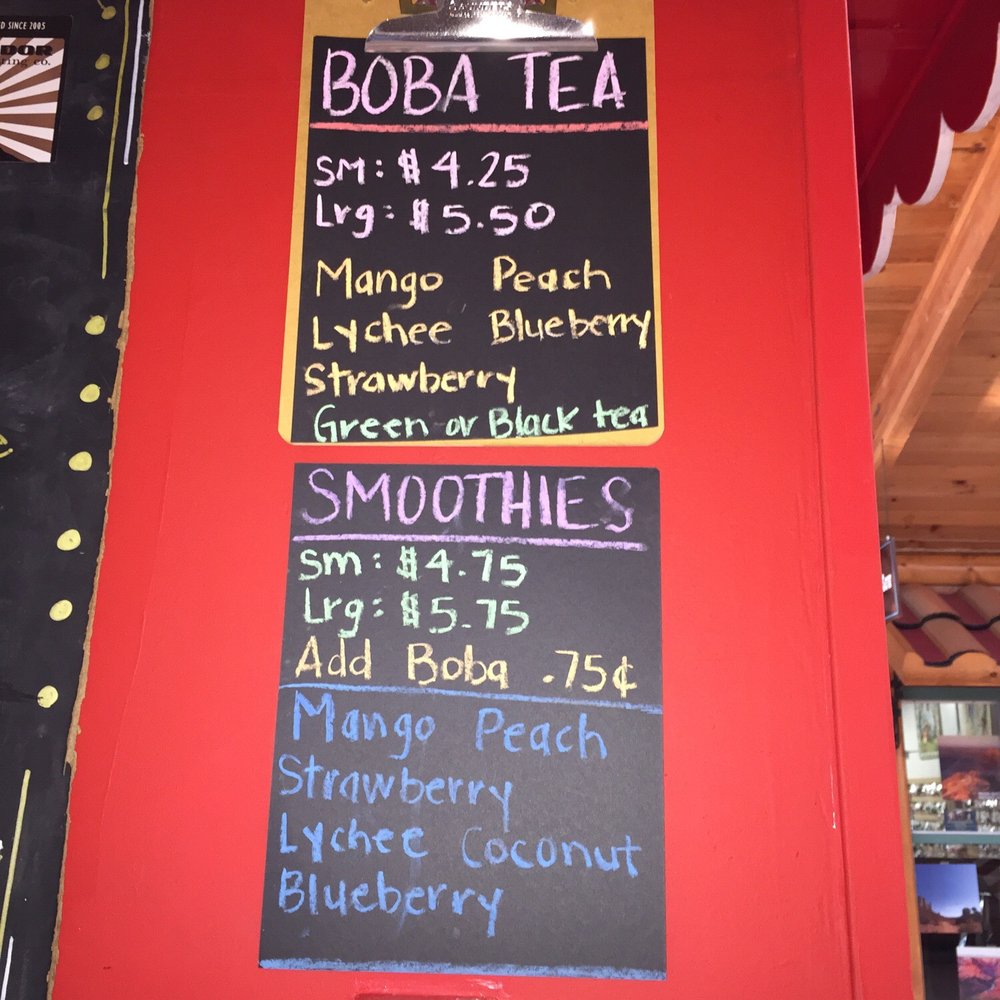 D SINCE 2005
DOR
ting co.
BOBA TEA
SM: $4.25
Lrg: $5.50
Mango Peach
Lychee Blueberry
Strawberry
Green or Black tea
SMOOTHIES
Sm: $4.75
Lrg: $5.75
Add Boba .75¢
Mango Peach
Strawberry
Lychee Coconut
Blueberry